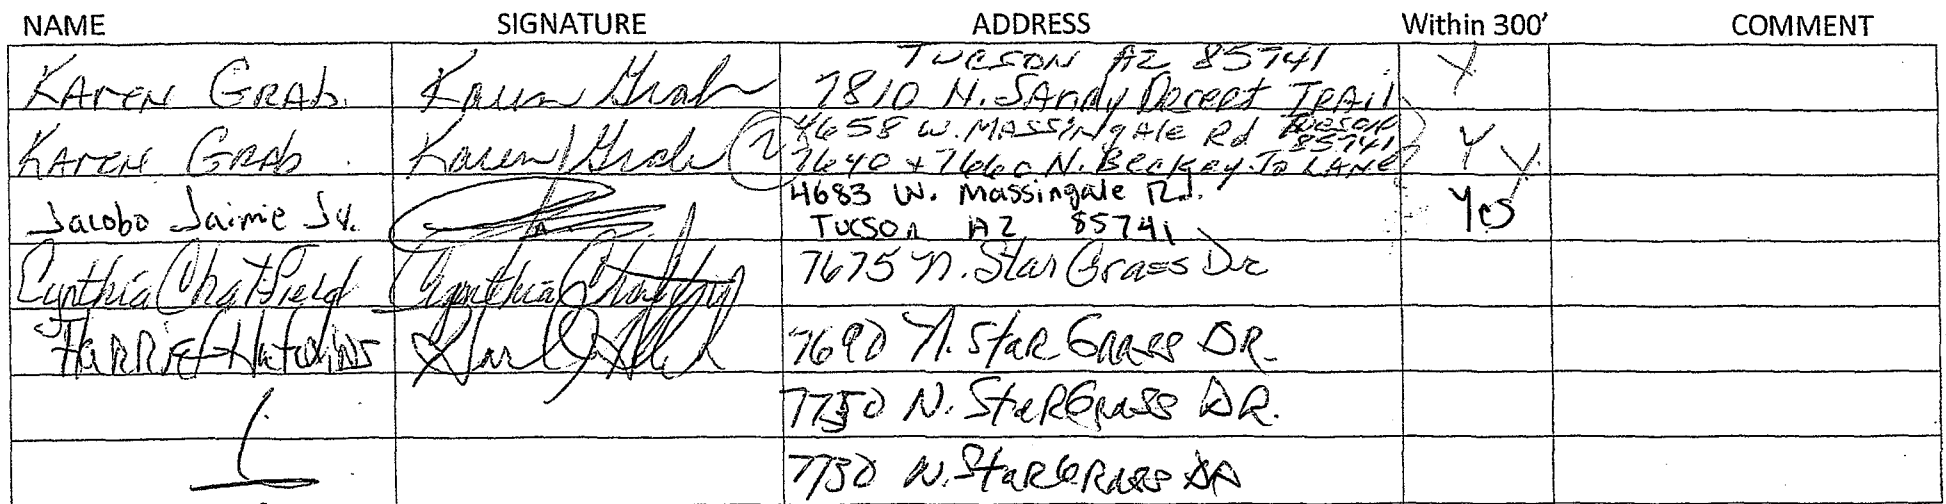 NAME SIGNATURE ADDRESS Within 300' COMMENT
KAREN GRAB. Karen Grab TUCSON AZ 85741 Y
7810 N. SANdy DeseRt TRAil
KAREN GRAb. Karen Grab 2 4658 W. MASSiNgAle Rd TUCSON 85741 Y Y
7640 + 7660 N. BecKey Jo LANE
Jacobo Jaime Jr. 4683 W. Massingale Rd. Yes
TUCSON AZ 85741
Cynthia Chatfield Cynthia Chatfield 7675 N. Star Grass Dr
HARRiet HutchiNS 7690 N. StaR GRass DR.
7750 N. StaRGRass DR.
N. StaRGRass DR